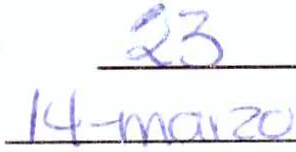 23
14-marzo